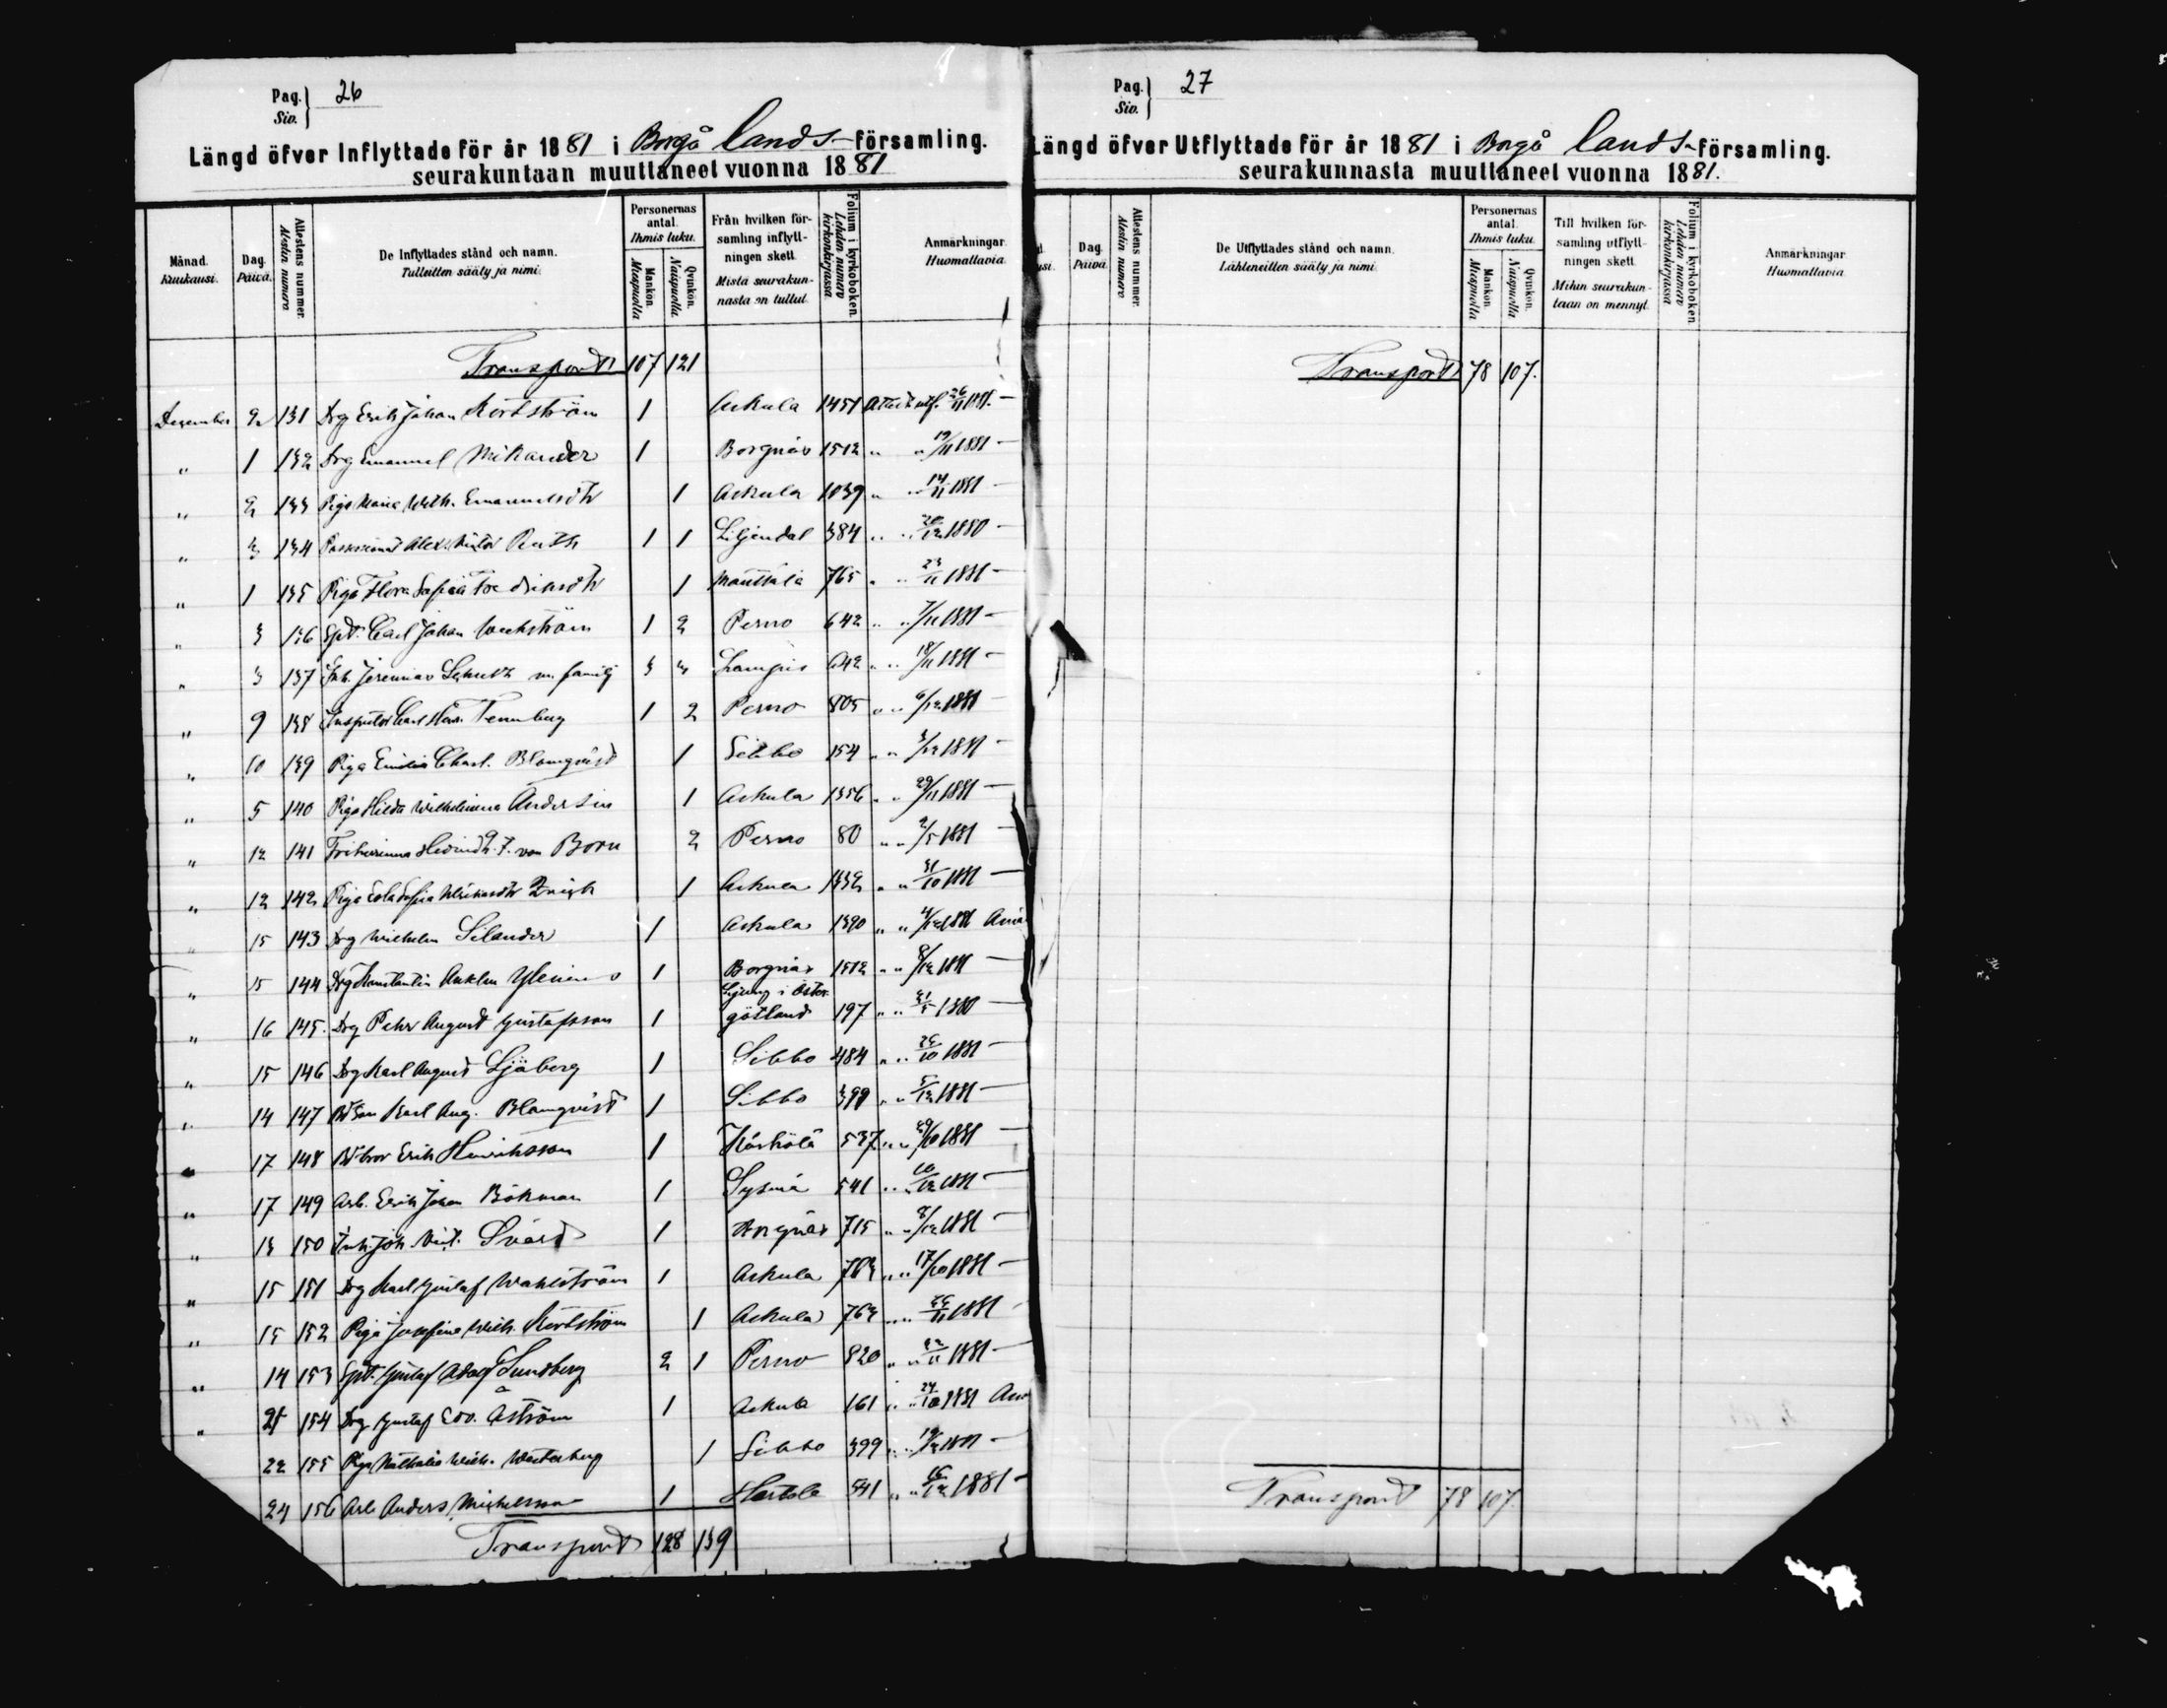 Pag. Siv. 26
Längd öfver Inflyttade för år 1881 i Borgå lands-församling.
seurakuntaan muuttaneet vuonna 1881
Månad. Kuukausi.
Dag. Päivä.
Attestens nummer. Alestin numero
De Inflyttades stånd och namn. Tulleitten sääty ja nimi.
Personernas antal. Ihmis luku.
Mankön. Miespuolia
Qvinkön. Naispuolia.
Från hvilken församling inflyttningen skett. Mistä seurakunnasta on tullut.
Folium i kyrkoboken. Lehden numero kirkonkirjassa.
Anmärkningar. Huomattavia.
Transport 107 121
December 2 131 Drg Erik Johan Kortström 1 Askula 1451 Attest utf. 26/11 1881. —
„ 1 132 Drg Emanuel Mikander 1 Borgnäs 1512 „ „ 19/11 1881 —
„ 2 133 Piga Maria Wilh. Emanuelsdtr 1 Askula 1039 „ „ 14/11 1881 —
„ 3 134 Alex. Ruth 1 1 Liljendal 384 „ „ 20/12 1880 —
„ 1 135 Piga Flora Sofia Fredriksdtr 1 Mäntsälä 765 „ „ 23/11 1881 —
„ 3 136 Carl Johan Weckström 1 2 Perno 642 „ „ 7/11 1881 —
„ 3 137 Inh. Jeremias Schultz m. familj 3 3 Lampis 642 „ „ 18/11 1881 —
„ 9 138 Inspektor Carl Tennberg 1 2 Perno 805 „ „ 6/12 1881 —
„ 10 139 Piga Emilia Charl. Blomqvist 1 Sibbo 154 „ „ 3/12 1881 —
„ 5 140 Piga Hilda Wilhelmina Andersin 1 Askula 1356 „ „ 29/11 1881 —
„ 12 141 Friherrinna von Born 2 Perno 80 „ „ 2/5 1881 —
„ 12 142 Piga Sofia 1 Askula 1332 „ „ 31/10 1881 —
„ 15 143 Drg Wilhelm Silander 1 Askula 1390 „ „ 4/12 1881
„ 15 144 Drg Konstantin Anselm Ylenius 1 Borgnäs 1512 „ „ 8/12 1881 —
„ 16 145. Drg Pehr August Gustafsson 1 Ljung i Östergötland 197 „ „ 31/5 1880 —
„ 15 146 Drg Karl August Sjöberg 1 Sibbo 484 „ „ 25/10 1881 —
„ 14 147 Karl Aug. Blomqvist 1 Sibbo 399 „ „ 5/12 1881 —
„ 17 148 Erik Henriksson 1 Kärkölä 537 „ „ 29/10 1881 —
„ 17 149 Arb. Erik Johan Bökman 1 Sysmä 541 „ „ 10/12 1881 —
„ 13 150 Inh. Joh. Vikt. Svärd 1 715 „ „ 8/12 1881 —
„ 15 151 Drg Karl Gustaf Wahlström 1 Askula 763 „ „ 17/10 1881 —
„ 15 152 Piga Josefina Wilh. Kortström 1 Askula 763 „ „ 26/11 1881 —
„ 14 153 Gustaf Adolf Sundberg 2 1 Perno 820 „ „ 22/11 1881 —
„ 21 154 Drg Gustaf Edv. Åström 1 Askula 161 „ „ 24/10 1881
22 155 Piga Nathalia Wilh. Westerberg 1 Sibbo 399 „ „ 19/12 1881 —
24 156 Arb Anders Michelsson 1 Hartola 541 „ „ 16/12 1881 —
Transport 128 139
Pag. Siv. 27
Längd öfver Utflyttade för år 1881 i Borgå lands-församling.
seurakunnasta muuttaneet vuonna 1881.
Dag. Päivä.
Attestens nummer. Alestin numero
De Utflyttades stånd och namn. Lähteneitten sääty ja nimi.
Personernas antal. Ihmis luku.
Mankön. Miespuolia
Qvinkön. Naispuolia
Till hvilken församling utflyttningen skett. Mihin seurakuntaan on mennyt.
Folium i kyrkoboken. Lehden numero kirkonkirjassa
Anmärkningar. Huomattavia.
Transport 78 107.
Transport 78 107.